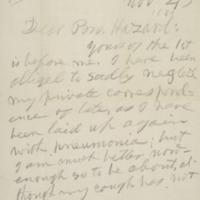 Nov. 4,
Dear Bro. Hazard:
Yours of the 1st
is before me. I have been
obliged to sadly neglect
my private correspond-
ence of late, as I have
been laid up again
with pneumonia; but
I am much better now—
enough so to be about, al-
though my cough has not